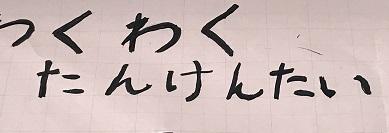 わくわく
たんけんたい